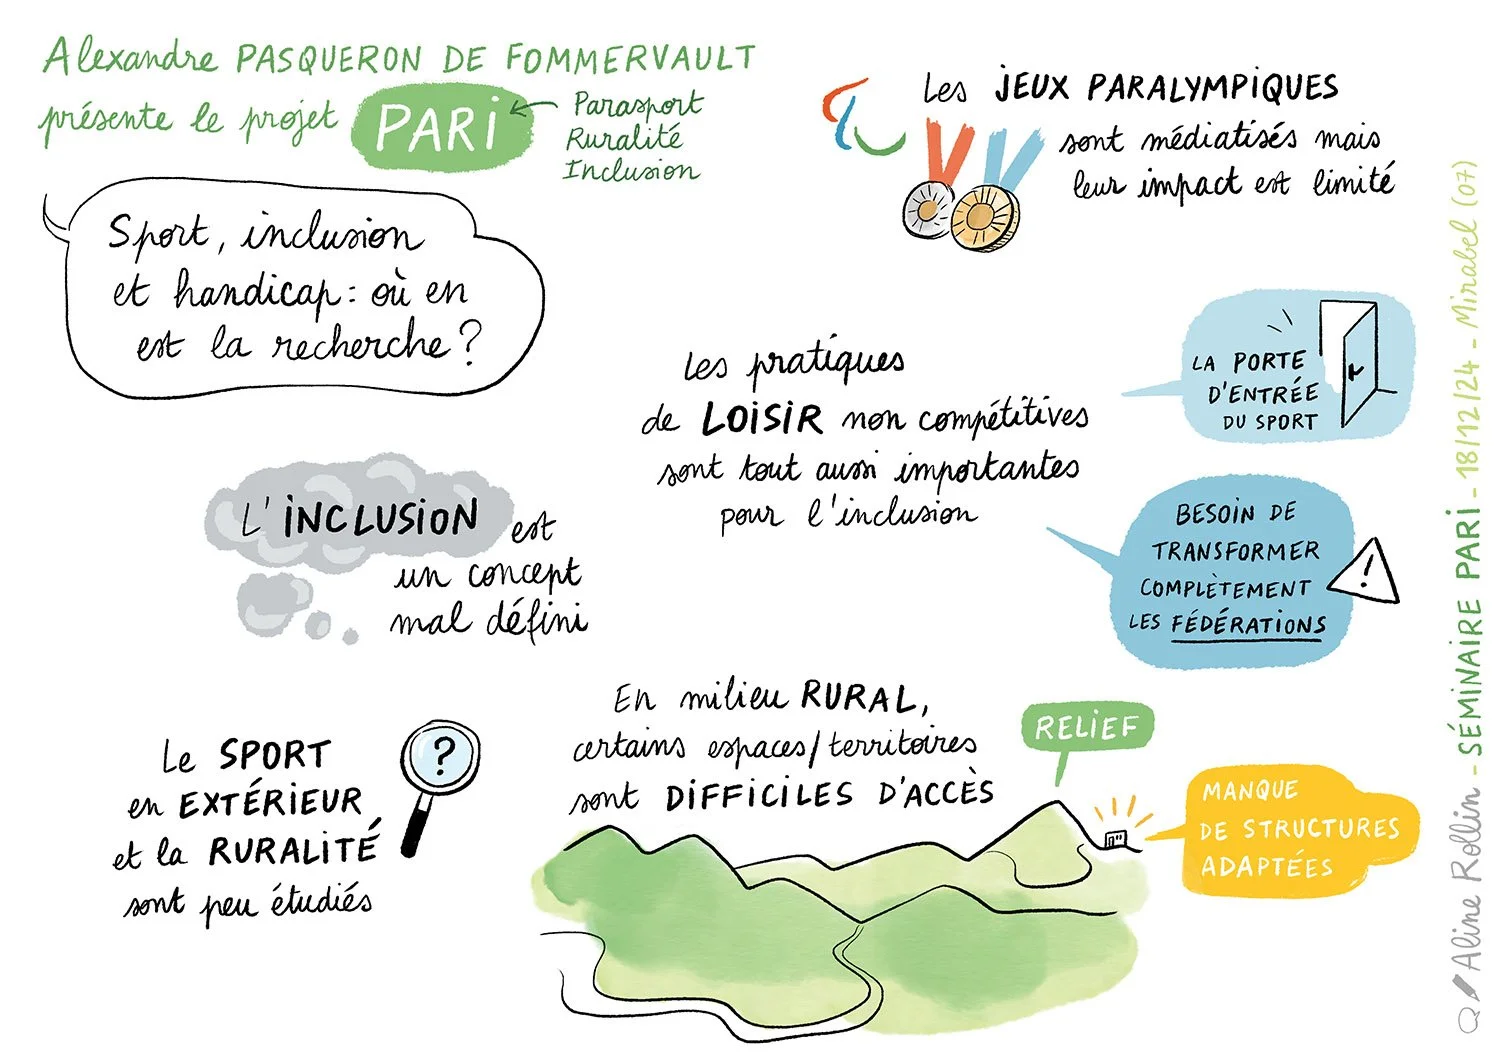 Alexandre PASQUERON DE FOMMERVAULT
présente le projet PARI
Parasport
Ruralité
Inclusion
Sport, inclusion
et handicap : où en
est la recherche ?
Les JEUX PARALYMPIQUES
sont médiatisés mais
leur impact est limité
Les pratiques
de LOISIR non compétitives
sont tout aussi importantes
pour l'inclusion
LA PORTE
D'ENTRÉE
DU SPORT
BESOIN DE
TRANSFORMER
COMPLÈTEMENT
LES FÉDÉRATIONS
!
L'INCLUSION est
un concept
mal défini
Le SPORT
en EXTÉRIEUR
et la RURALITÉ
sont peu étudiés
?
En milieu RURAL,
certains espaces/territoires
sont DIFFICILES D'ACCÈS
RELIEF
MANQUE
DE STRUCTURES
ADAPTÉES
Aline Rollin - SÉMINAIRE PARI - 18/12/24 - Mirabel (07)